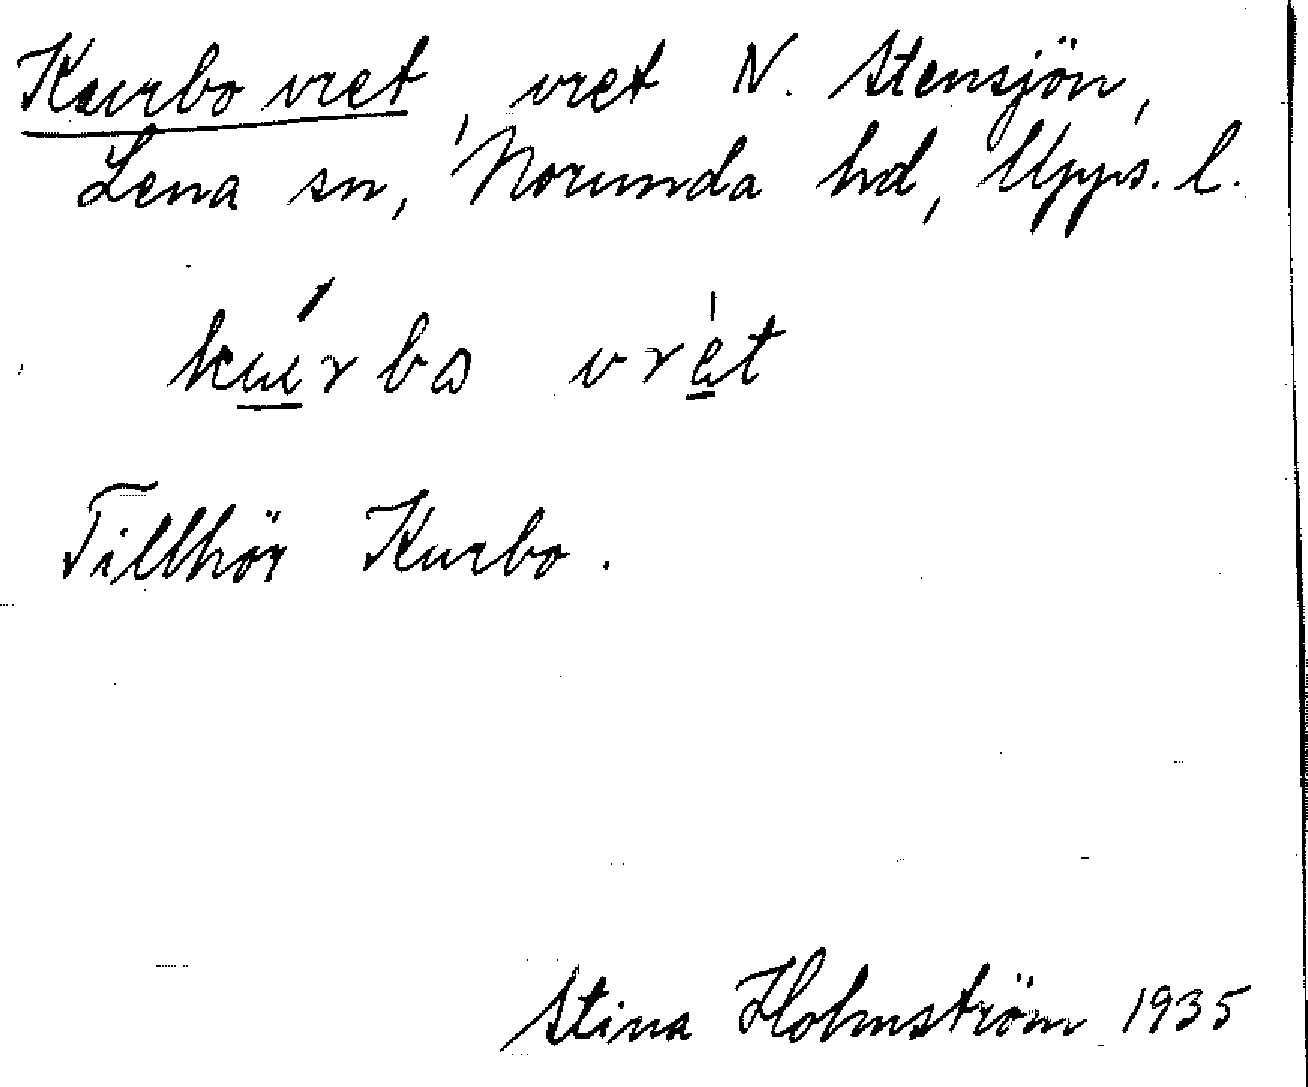 Kurbo vret, vret N. Stensjön,
Lena sn, Norunda hd, Upps. l.
kúrbo vrèt
Tillhör Kurbo.
Stina Holmström 1935